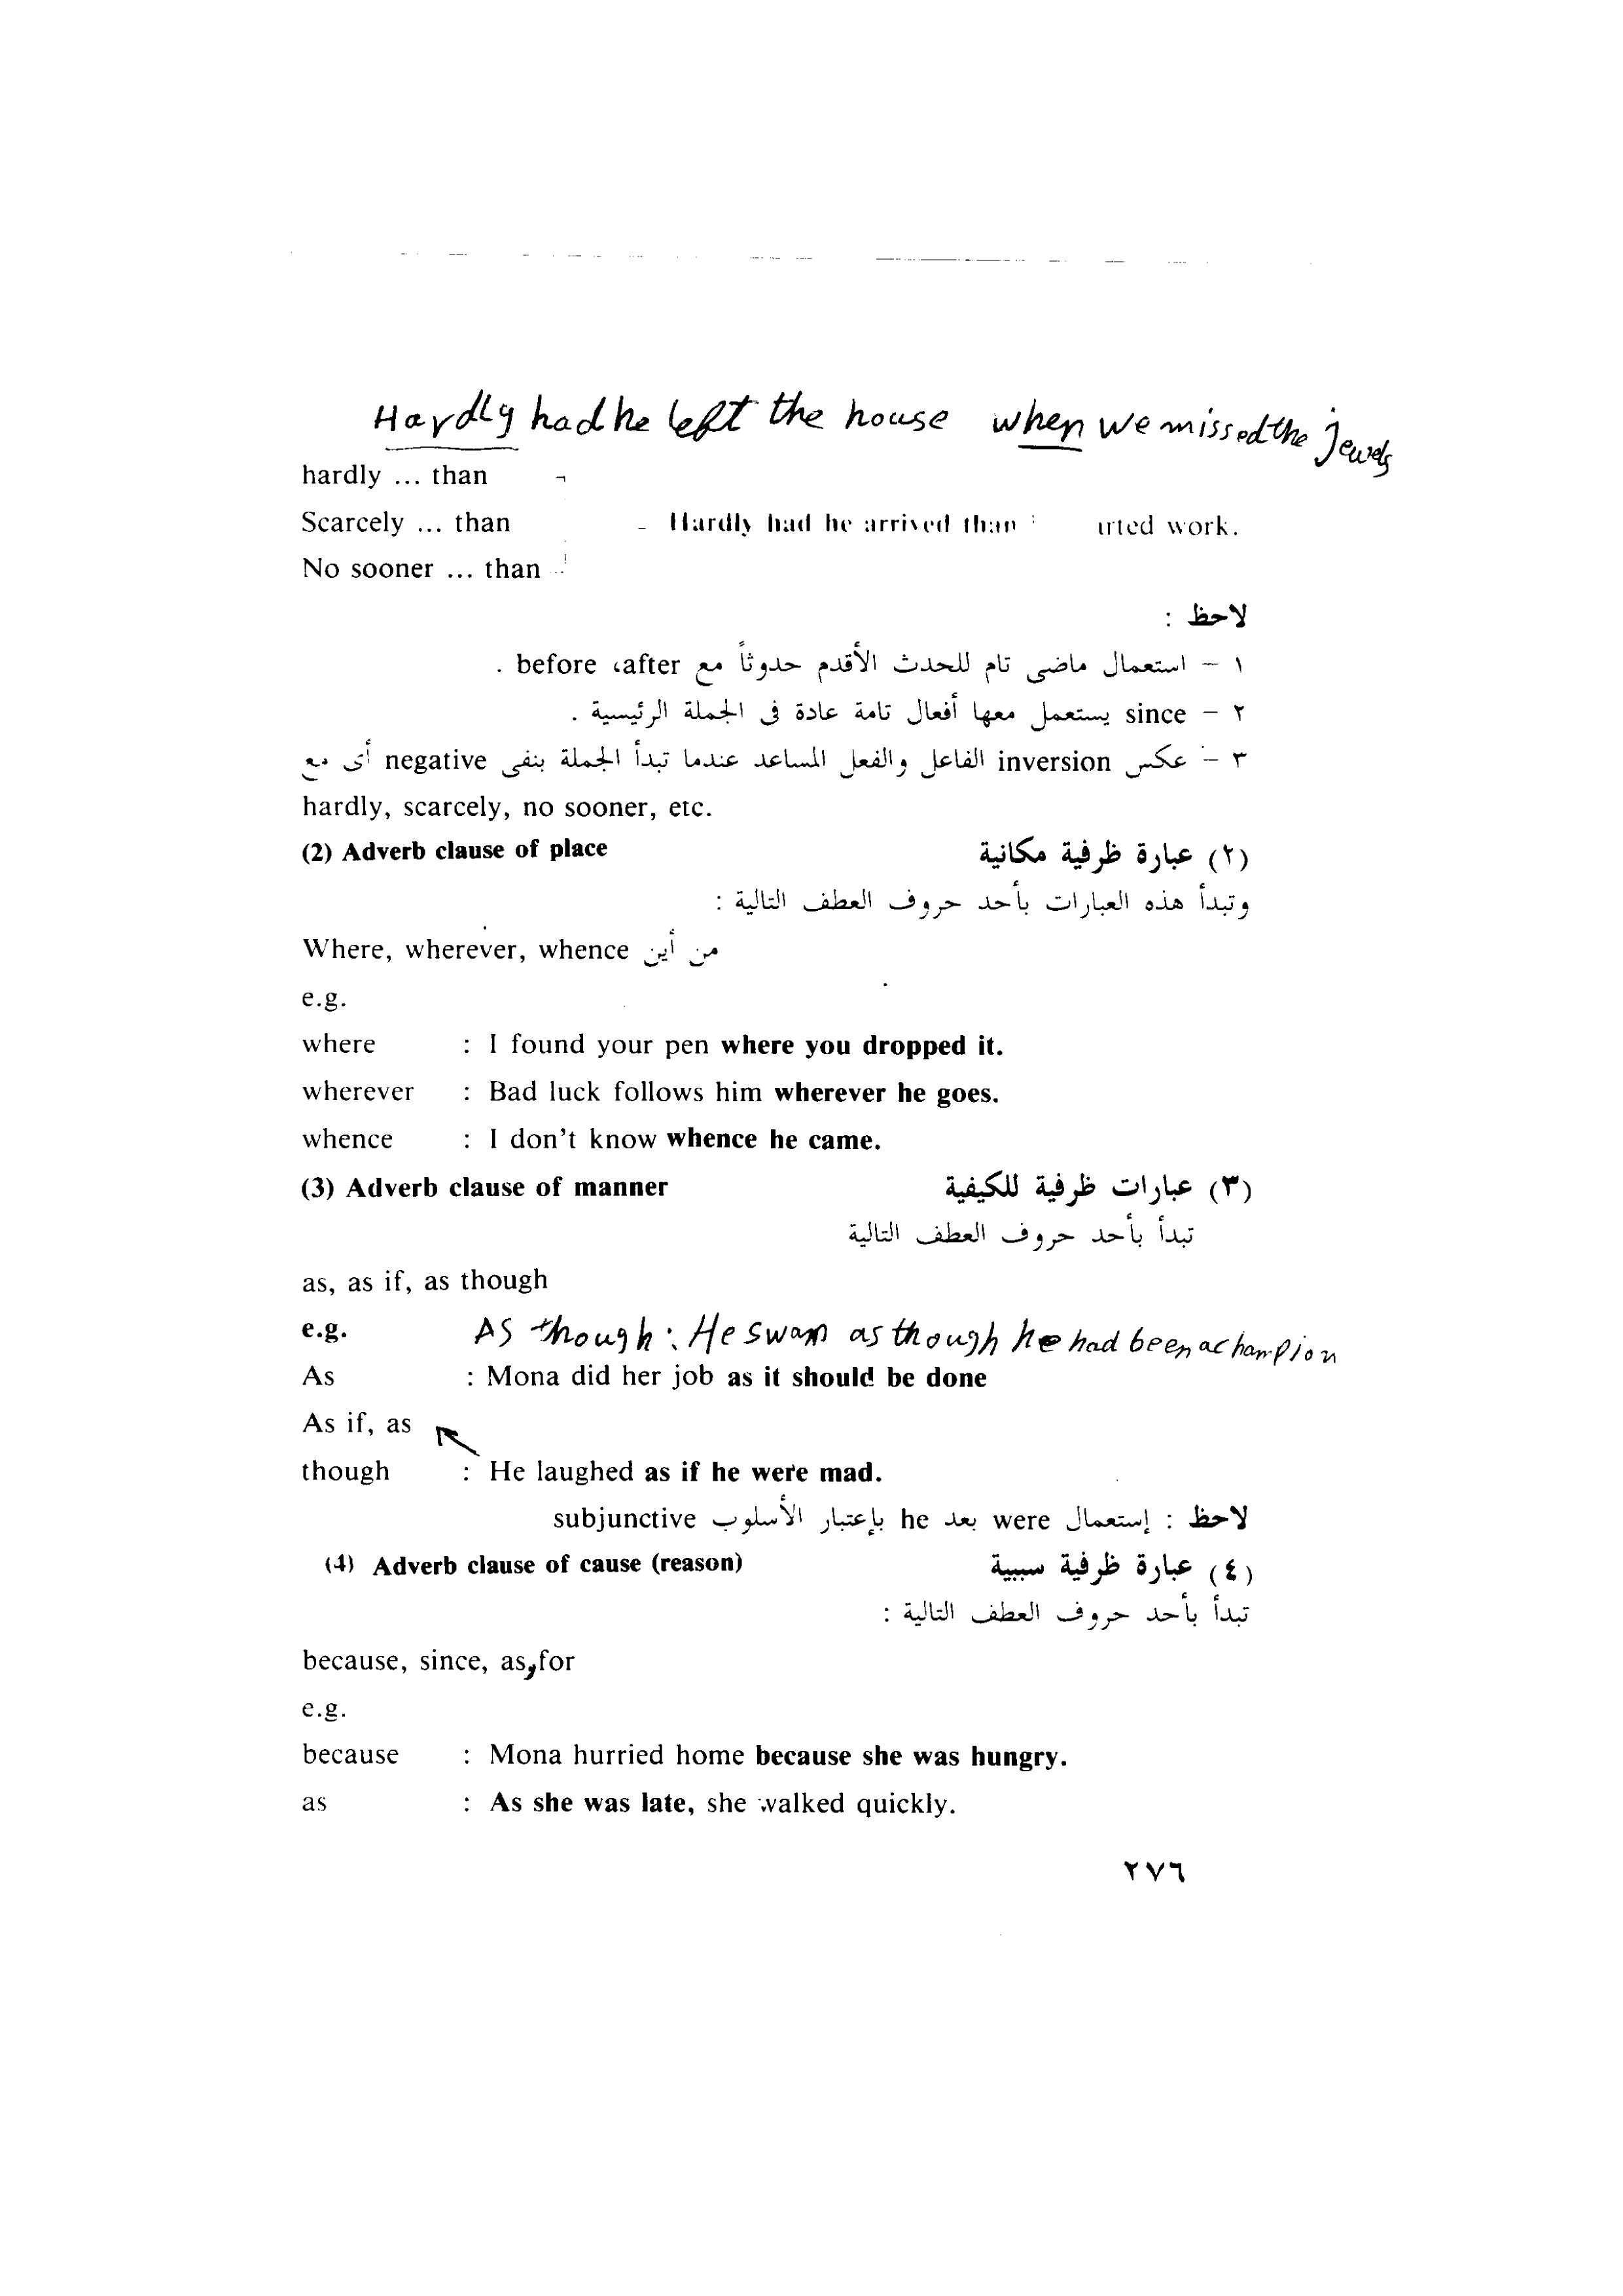 Hardly had he left the house when we missed the jewels
hardly ... than
Scarcely ... than Hardly had he arrived than work.
No sooner ... than
لاحظ :
١ – استعمال ماضى تام للحدث الأقدم حدوثاً مع before ،after .
٢ – since يستعمل معها أفعال تامة عادة فى الجملة الرئيسية .
٣ – عكس inversion الفاعل والفعل المساعد عندما تبدأ الجملة بنفى negative أى مع
hardly, scarcely, no sooner, etc.
(2) Adverb clause of place (٢) عبارة ظرفية مكانية
وتبدأ هذه العبارات بأحد حروف العطف التالية :
Where, wherever, whence من أين
e.g.
where : I found your pen where you dropped it.
wherever : Bad luck follows him wherever he goes.
whence : I don't know whence he came.
(3) Adverb clause of manner (٣) عبارات ظرفية للكيفية
تبدأ بأحد حروف العطف التالية
as, as if, as though
e.g. As though : He swam as though he had been a champion
As : Mona did her job as it should be done
As if, as
though : He laughed as if he were mad.
لاحظ : إستعمال were بعد he بإعتبار الأسلوب subjunctive
(4) Adverb clause of cause (reason) (٤) عبارة ظرفية سببية
تبدأ بأحد حروف العطف التالية :
because, since, as, for
e.g.
because : Mona hurried home because she was hungry.
as : As she was late, she walked quickly.
٢٧٦